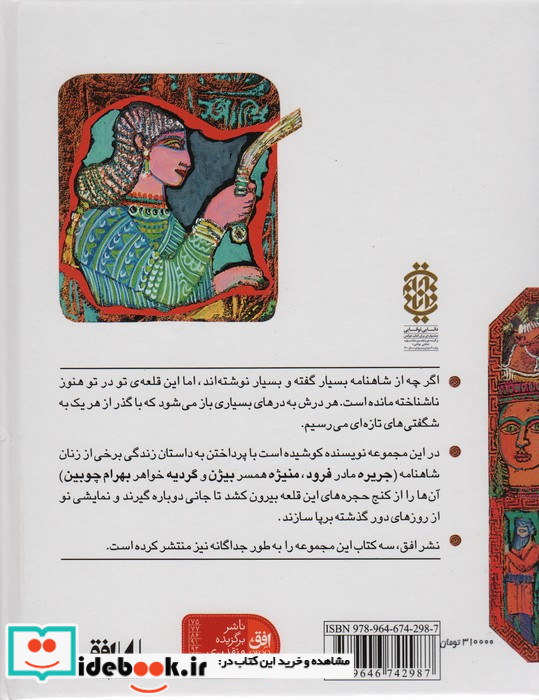 دانایی توانایی
اگر چه از شاهنامه بسیار گفته و بسیار نوشته‌اند، اما این قلعه‌ی تو در تو هنوز
ناشناخته مانده است. هر درش به درهای بسیاری باز می‌شود که با گذر از هر یک به
شگفتی‌های تازه‌ای می‌رسیم.
در این مجموعه نویسنده کوشیده است با پرداختن به داستان زندگی برخی از زنان
شاهنامه (جریره مادر فرود، منیژه همسر بیژن و گردیه خواهر بهرام چوبین)
آن‌ها را از کنج حجره‌های این قلعه بیرون کشد تا جانی دوباره گیرند و نمایشی نو
از روزهای دور گذشته برپا سازند.
نشر افق، سه کتاب این مجموعه را به طور جداگانه نیز منتشر کرده است.
ISBN 978-964-674-298-7
9646 742987
۳۱۰۰۰۰ تومان
ناشر
برگزیده
افق
افق
مشاهده و خرید این کتاب در:
idebook.ir